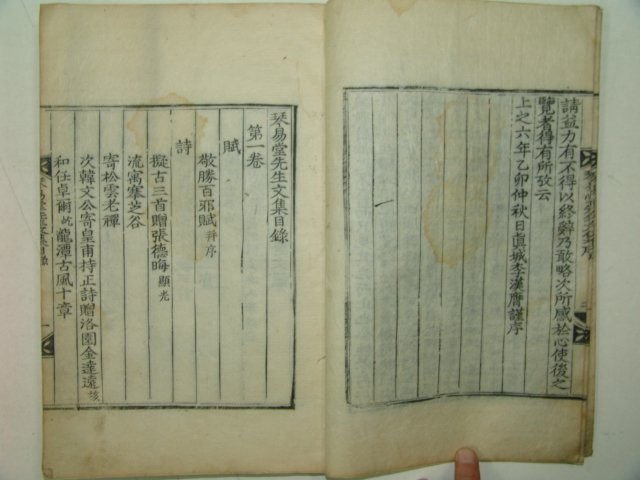 請益力有不得以終辭乃敢略次所感於心使後之
覽者得有所攷云
上之六年乙卯仲秋日眞城李漢膺謹序
琴易堂先生文集目錄
第一卷
賦
敬勝百邪賦 幷序
詩
擬古三首贈張德晦 顯光
流寓寒芝谷
寄松雲老禪
次韓文公寄皇甫持正詩贈洛園金達遠 垓
和任卓爾 屹 龍潭古風十章